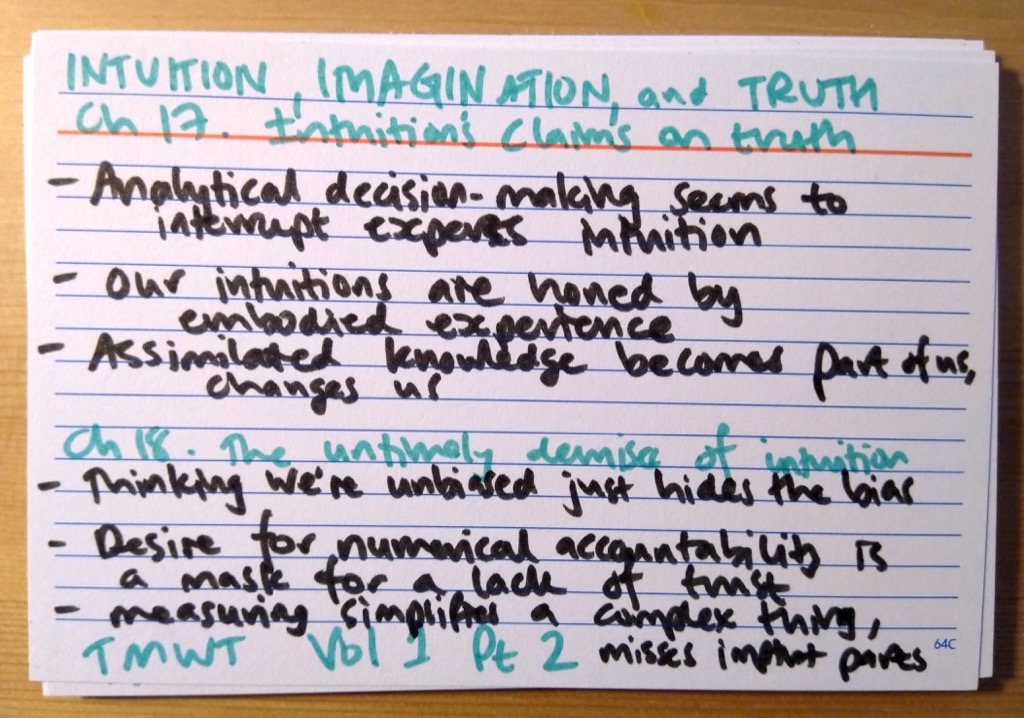 INTUITION, IMAGINATION, and TRUTH
Ch 17. Intuition's Claims on truth
- Analytical decision-making seems to
interrupt experts intuition
- Our intuitions are honed by
embodied experience
- Assimilated knowledge becomes part of us,
changes us
Ch 18. The untimely demise of intuition
- Thinking we're unbiased just hides the bias
- Desire for numerical accountability is
a mask for a lack of trust
- measuring simplifies a complex thing,
misses implicit parts
TMWT Vol 1 Pt 2
64C